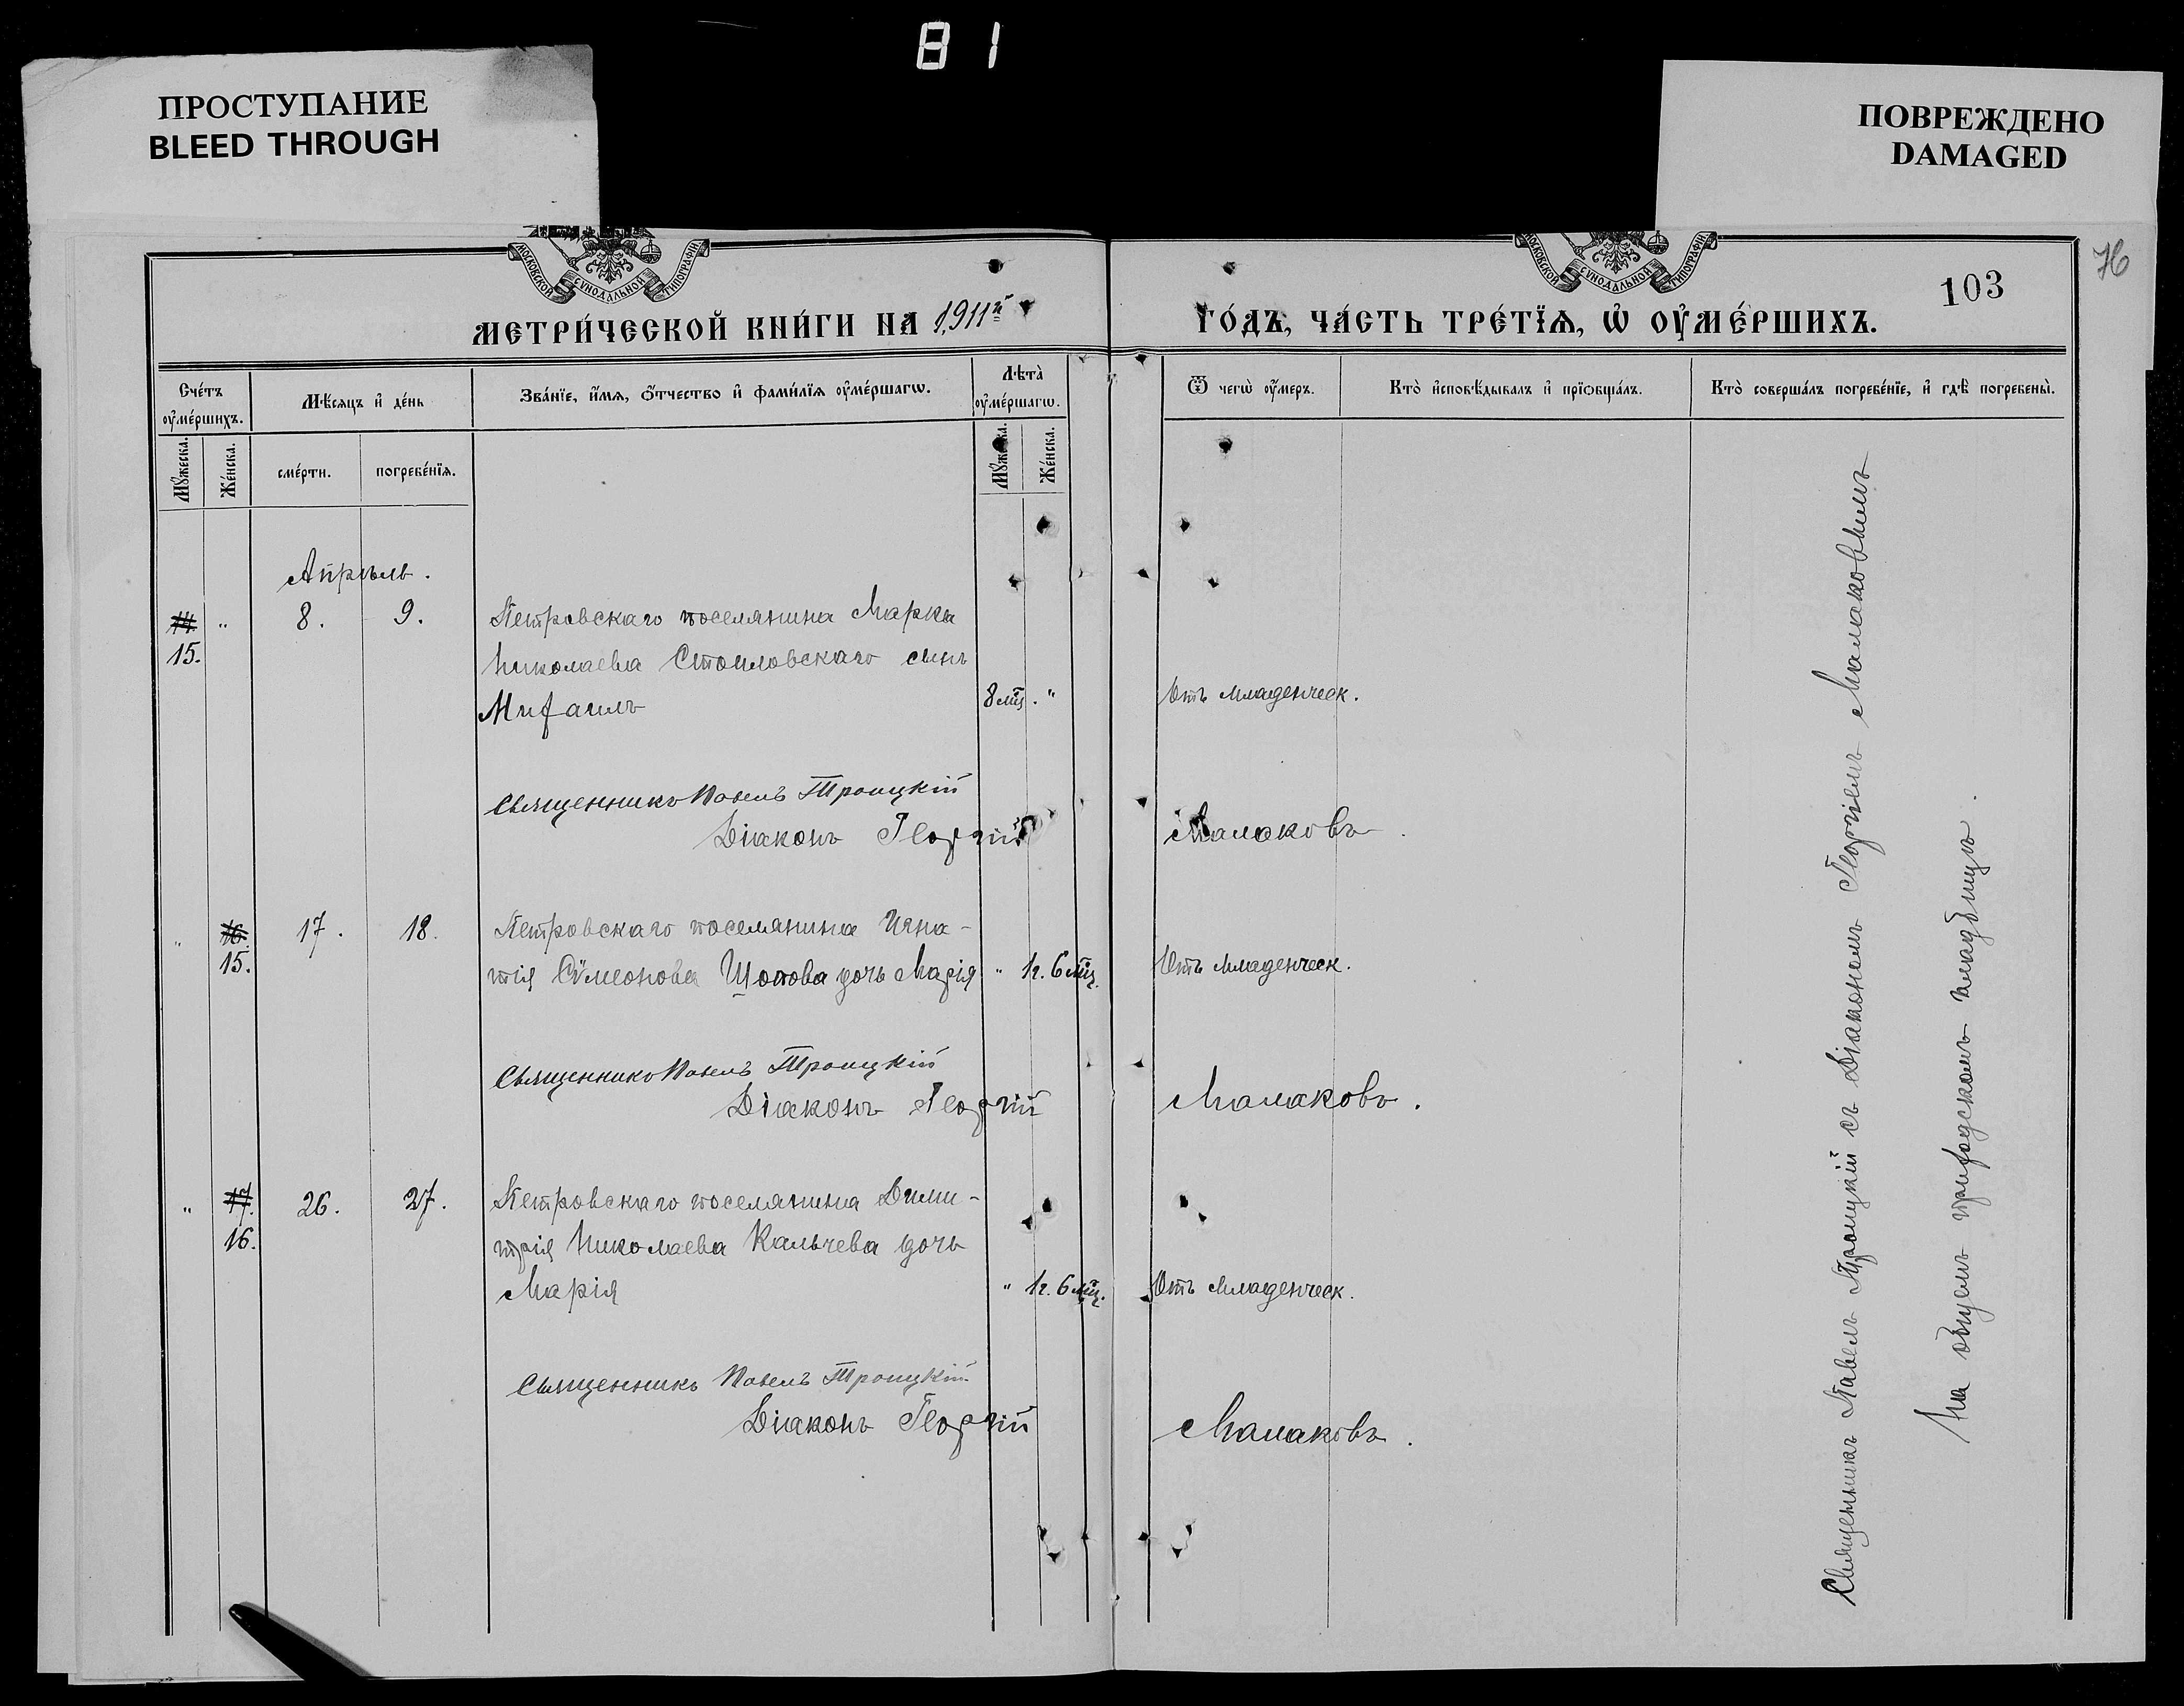 81
ПРОСТУПАНИЕ
BLEED THROUGH
ПОВРЕЖДЕНО
DAMAGED
МОСКОВСКОЙ СѴНОДАЛЬНОЙ ТИПОГРАФІИ
МОСКОВСКОЙ СѴНОДАЛЬНОЙ ТИПОГРАФІИ
103
76
МЕТРИ́ЧЕСКОЙ КНИ́ГИ НА 1911й
ГО́ДЪ, ЧА́СТЬ ТРЕ́ТЇѦ, Ѡ҆ ОУ҆МЕ́РШИХЪ.
Сче́тъ оу҆ме́ршихъ.
Мѣ́сяцъ и҆ де́нь
Зва́нїе, и҆́мѧ, о҆́тчество и҆ фами́лїѧ оу҆ме́ршагѡ.
Лѣта̀ оу҆ме́ршагѡ.
Ѿ чегѡ̀ оу҆́меръ.
Кто̀ и҆сповѣ́дывалъ и҆ прїѡбща́лъ.
Кто̀ соверша́лъ погребе́нїе, и҆ гдѣ̀ погребены̀.
Мꙋ́жеска.
Же́нска.
сме́рти.
погребе́нїѧ.
Мꙋ́жеска.
Же́нска.
Апрѣль.
14. " 8. 9. Петровскаго поселянина Марка
15. Николаева Стоиловскаго сынъ
Михаилъ 8 мц. " Отъ младенческ.
Священникъ Павелъ Троицкій
Діаконъ Георгій Малаковъ.
" 16. 17. 18. Петровскаго поселянина Игна-
15. тія Сѵмеонова Щопова дочь Марія " 1 г. 6 мц. Отъ младенческ.
Священникъ Павелъ Троицкій
Діаконъ Георгій Малаковъ.
" 17. 26. 27. Петровскаго поселянина Дими-
16. трія Николаева Кальчева дочь
Марія " 1 г. 6 мц. Отъ младенческ.
Священникъ Павелъ Троицкій
Діаконъ Георгій Малаковъ.
Священникъ Павелъ Троицкій съ Діакономъ Георгіемъ Малаковымъ
На общемъ приходскомъ кладбищѣ.